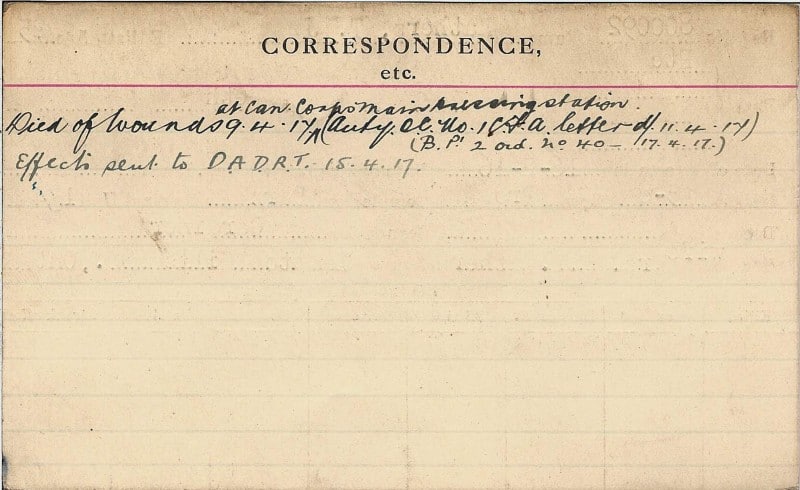 CORRESPONDENCE,
etc.
at Can. Corps main dressing station.
Died of Wounds 9.4.17 (Auty. O.C. No. 1 C.F.A. letter d/ 11.4.17)
(B. P! 2 ord. No 40 – 17.4.17.)
Effects sent to D.A.D.R.T. 15.4.17.